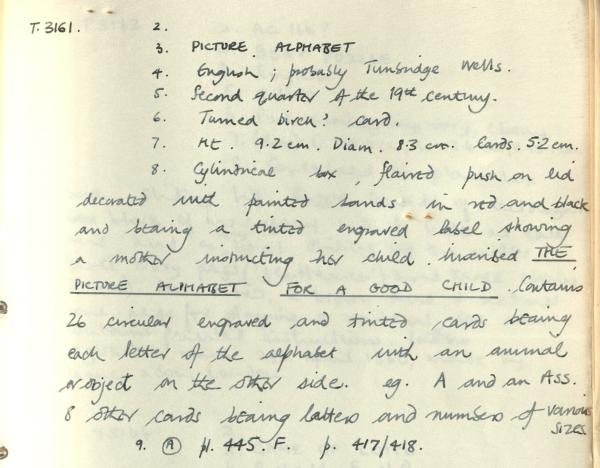 T.3161. 2.
3. PICTURE ALPHABET
4. English ; probably Tunbridge Wells.
5. Second quarter of the 19th century.
6. Turned birch? card.
7. Ht. 9.2 cm. Diam. 8.3 cm. Cards. 5.2 cm.
8. Cylindrical box, flaired push on lid
decorated with painted bands in red and black
and bearing a tinted engraved label showing
a mother instructing her child. Inscribed THE
PICTURE ALPHABET FOR A GOOD CHILD. Contains
26 circular engraved and tinted cards bearing
each letter of the alphabet with an animal
or object on the other side. eg. A and an Ass.
8 other cards bearing letters and numbers of various
sizes.
9. (a) pl. 445. F. p. 417/418.